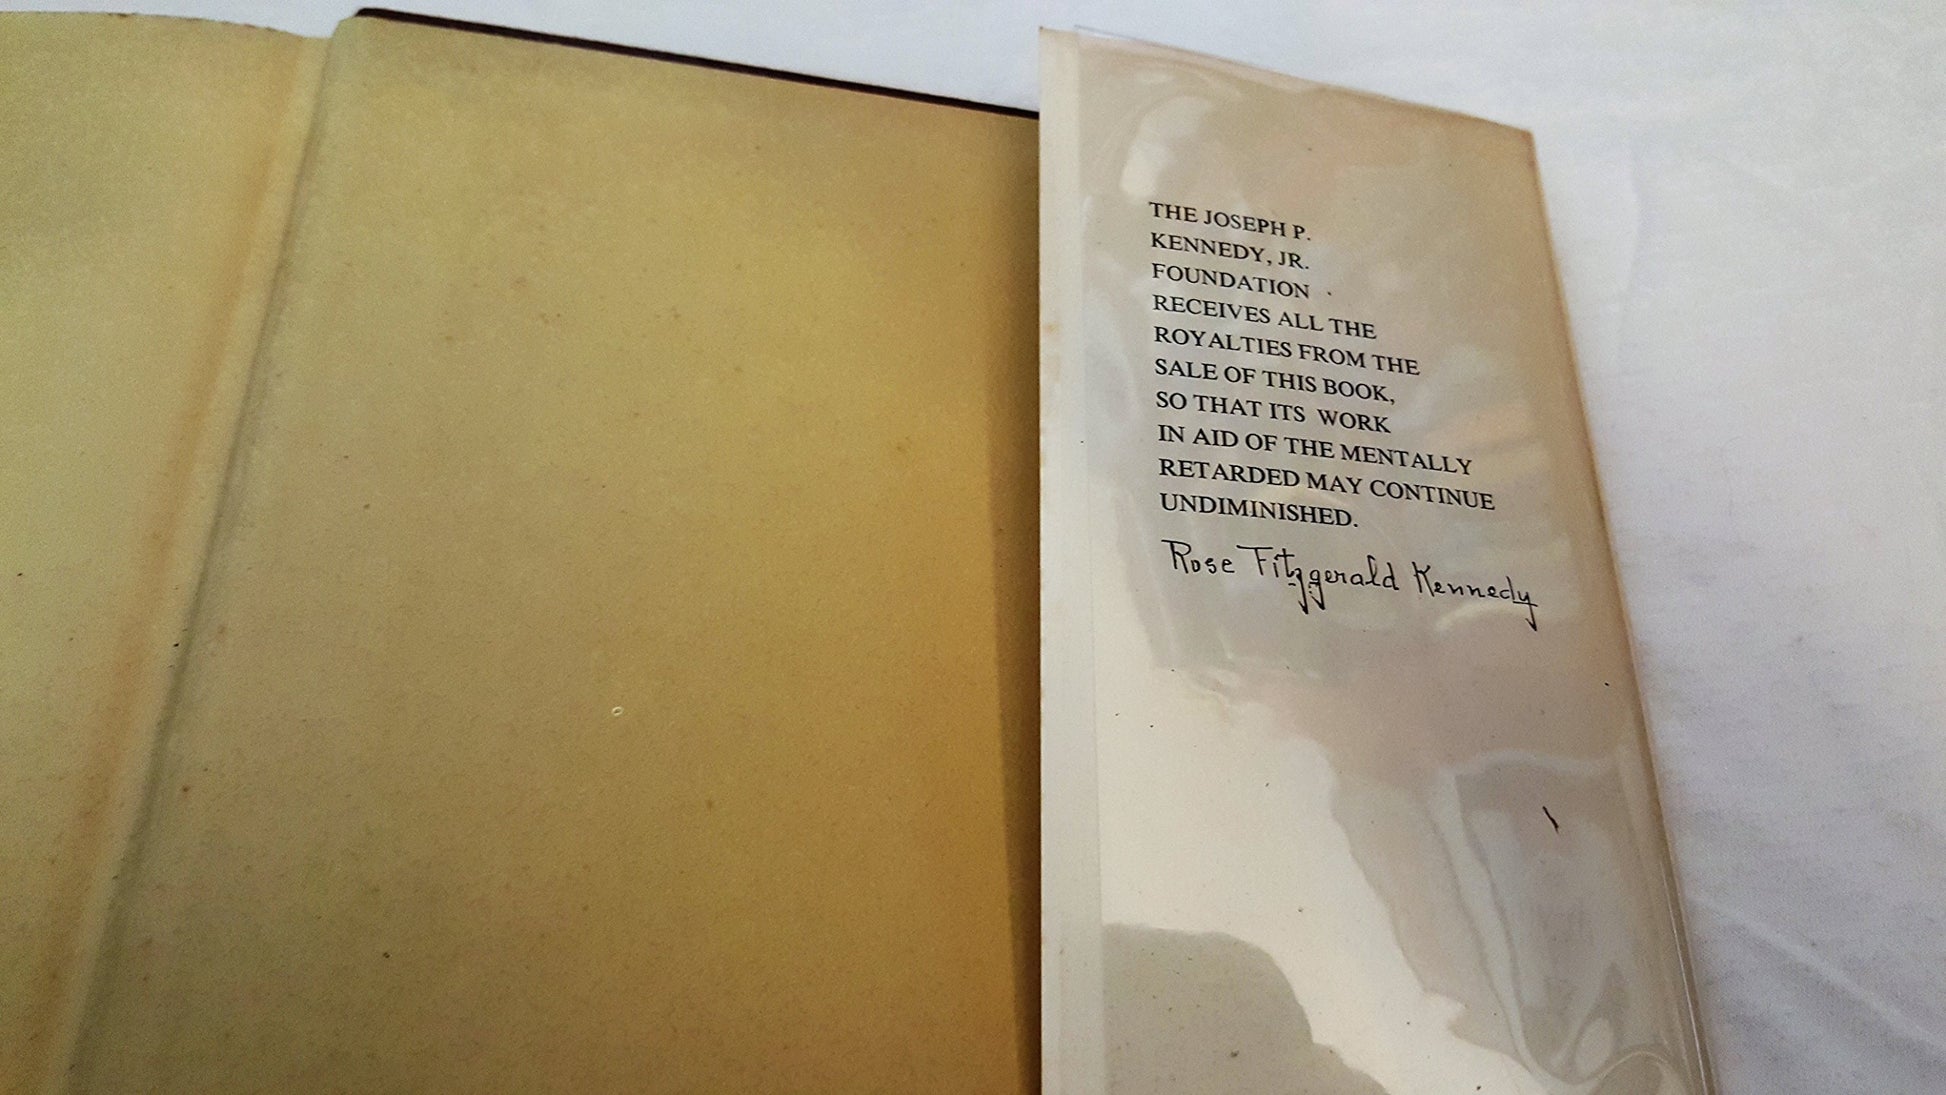 THE JOSEPH P.
KENNEDY, JR.
FOUNDATION
RECEIVES ALL THE
ROYALTIES FROM THE
SALE OF THIS BOOK,
SO THAT ITS WORK
IN AID OF THE MENTALLY
RETARDED MAY CONTINUE
UNDIMINISHED.
Rose Fitzgerald Kennedy